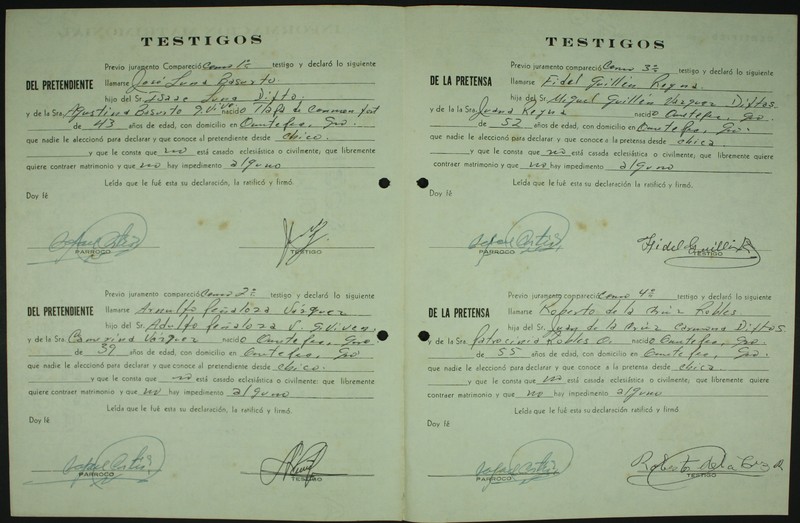 TESTIGOS
Previo juramento Compareció Como 1º testigo y declaró lo siguiente
DEL PRETENDIENTE llamarse José Luna Basurto
hijo del Sr. Isaac Luna Difto.
y de la Sra. Agustina q. vive. nació
de 43 años de edad, con domicilio en Ometepec, Gro.
que nadie le aleccionó para declarar y que conoce al pretendiente desde chico.
y que le consta que no está casado eclesiástica o civilmente, que libremente
quiere contraer matrimonio y que no hay impedimento alguno
Leída que le fué esta su declaración, la ratificó y firmó.
Doy fé
PARROCO TESTIGO
Previo juramento compareció Como 2º testigo y declaró lo siguiente
DEL PRETENDIENTE llamarse Arnulfo Peñaloza Vázquez
hijo del Sr. Adulfo Peñaloza V. q. viven.
y de la Sra. Vázquez nació Ometepec, Gro
de 39 años de edad, con domicilio en Ometepec, Gro
que nadie le aleccionó para declarar y que conoce al pretendiente desde chico.
y que le consta que no está casado eclesiástica o civilmente: que libremente
quiere contraer matrimonio y que no hay impedimento alguno
Leída que le fué esta su declaración, la ratificó y firmó.
Doy fé
PARROCO TESTIGO
TESTIGOS
Previo juramento compareció Como 3º testigo y declaró lo siguiente
DE LA PRETENSA llamarse Fidel Guillén Reyna.
hijo del Sr. Miguel Guillén Vázquez Diftos
y de la Sra. Juana Reyna nació Ometepec, Gro.
de 52 años de edad, con domicilio en Ometepec, Gro.
que nadie le aleccionó para declarar y que conoce a la pretensa desde chica.
y que le consta que no está casada eclesiástica o civilmente, que libremente quiere
contraer matrimonio y que no hay impedimento alguno
Leída que le fué esta su declaración, la ratificó y firmó.
Doy fé
PARROCO Fidel Guillén R
TESTIGO
Previo juramento compareció Como 4º testigo y declaró lo siguiente
DE LA PRETENSA llamarse Roberto de la Cruz Robles
hijo del Sr. Juan de la Cruz Carmona Diftos
y de la Sra. Patrocinia Robles O. nació Ometepec, Gro.
de 55 años de edad, con domicilio en Ometepec, Gro.
que nadie le aleccionó para declarar y que conoce a la pretensa desde chica.
y que le consta que no está casada eclesiástica o civilmente, que libremente quiere
contraer matrimonio y que no hay impedimento alguno
Leída que le fué esta su declaración ratificó y firmó.
Doy fé
PARROCO Roberto de la Cruz R
TESTIGO